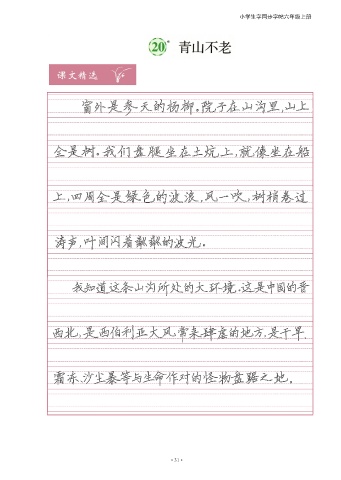 小学生字同步字帖六年级上册
20* 青山不老
课文精选
窗外是参天的杨柳。院子在山沟里,山上
全是树。我们盘腿坐在土炕上,就像坐在船
上,四周全是绿色的波浪,风一吹,树梢卷过
涛声,叶间闪着粼粼的波光。
我知道这条山沟所处的大环境。这是中国的晋
西北,是西伯利亚大风常来肆虐的地方,是干旱、
霜冻、沙尘暴等与生命作对的怪物盘踞之地。
• 31 •